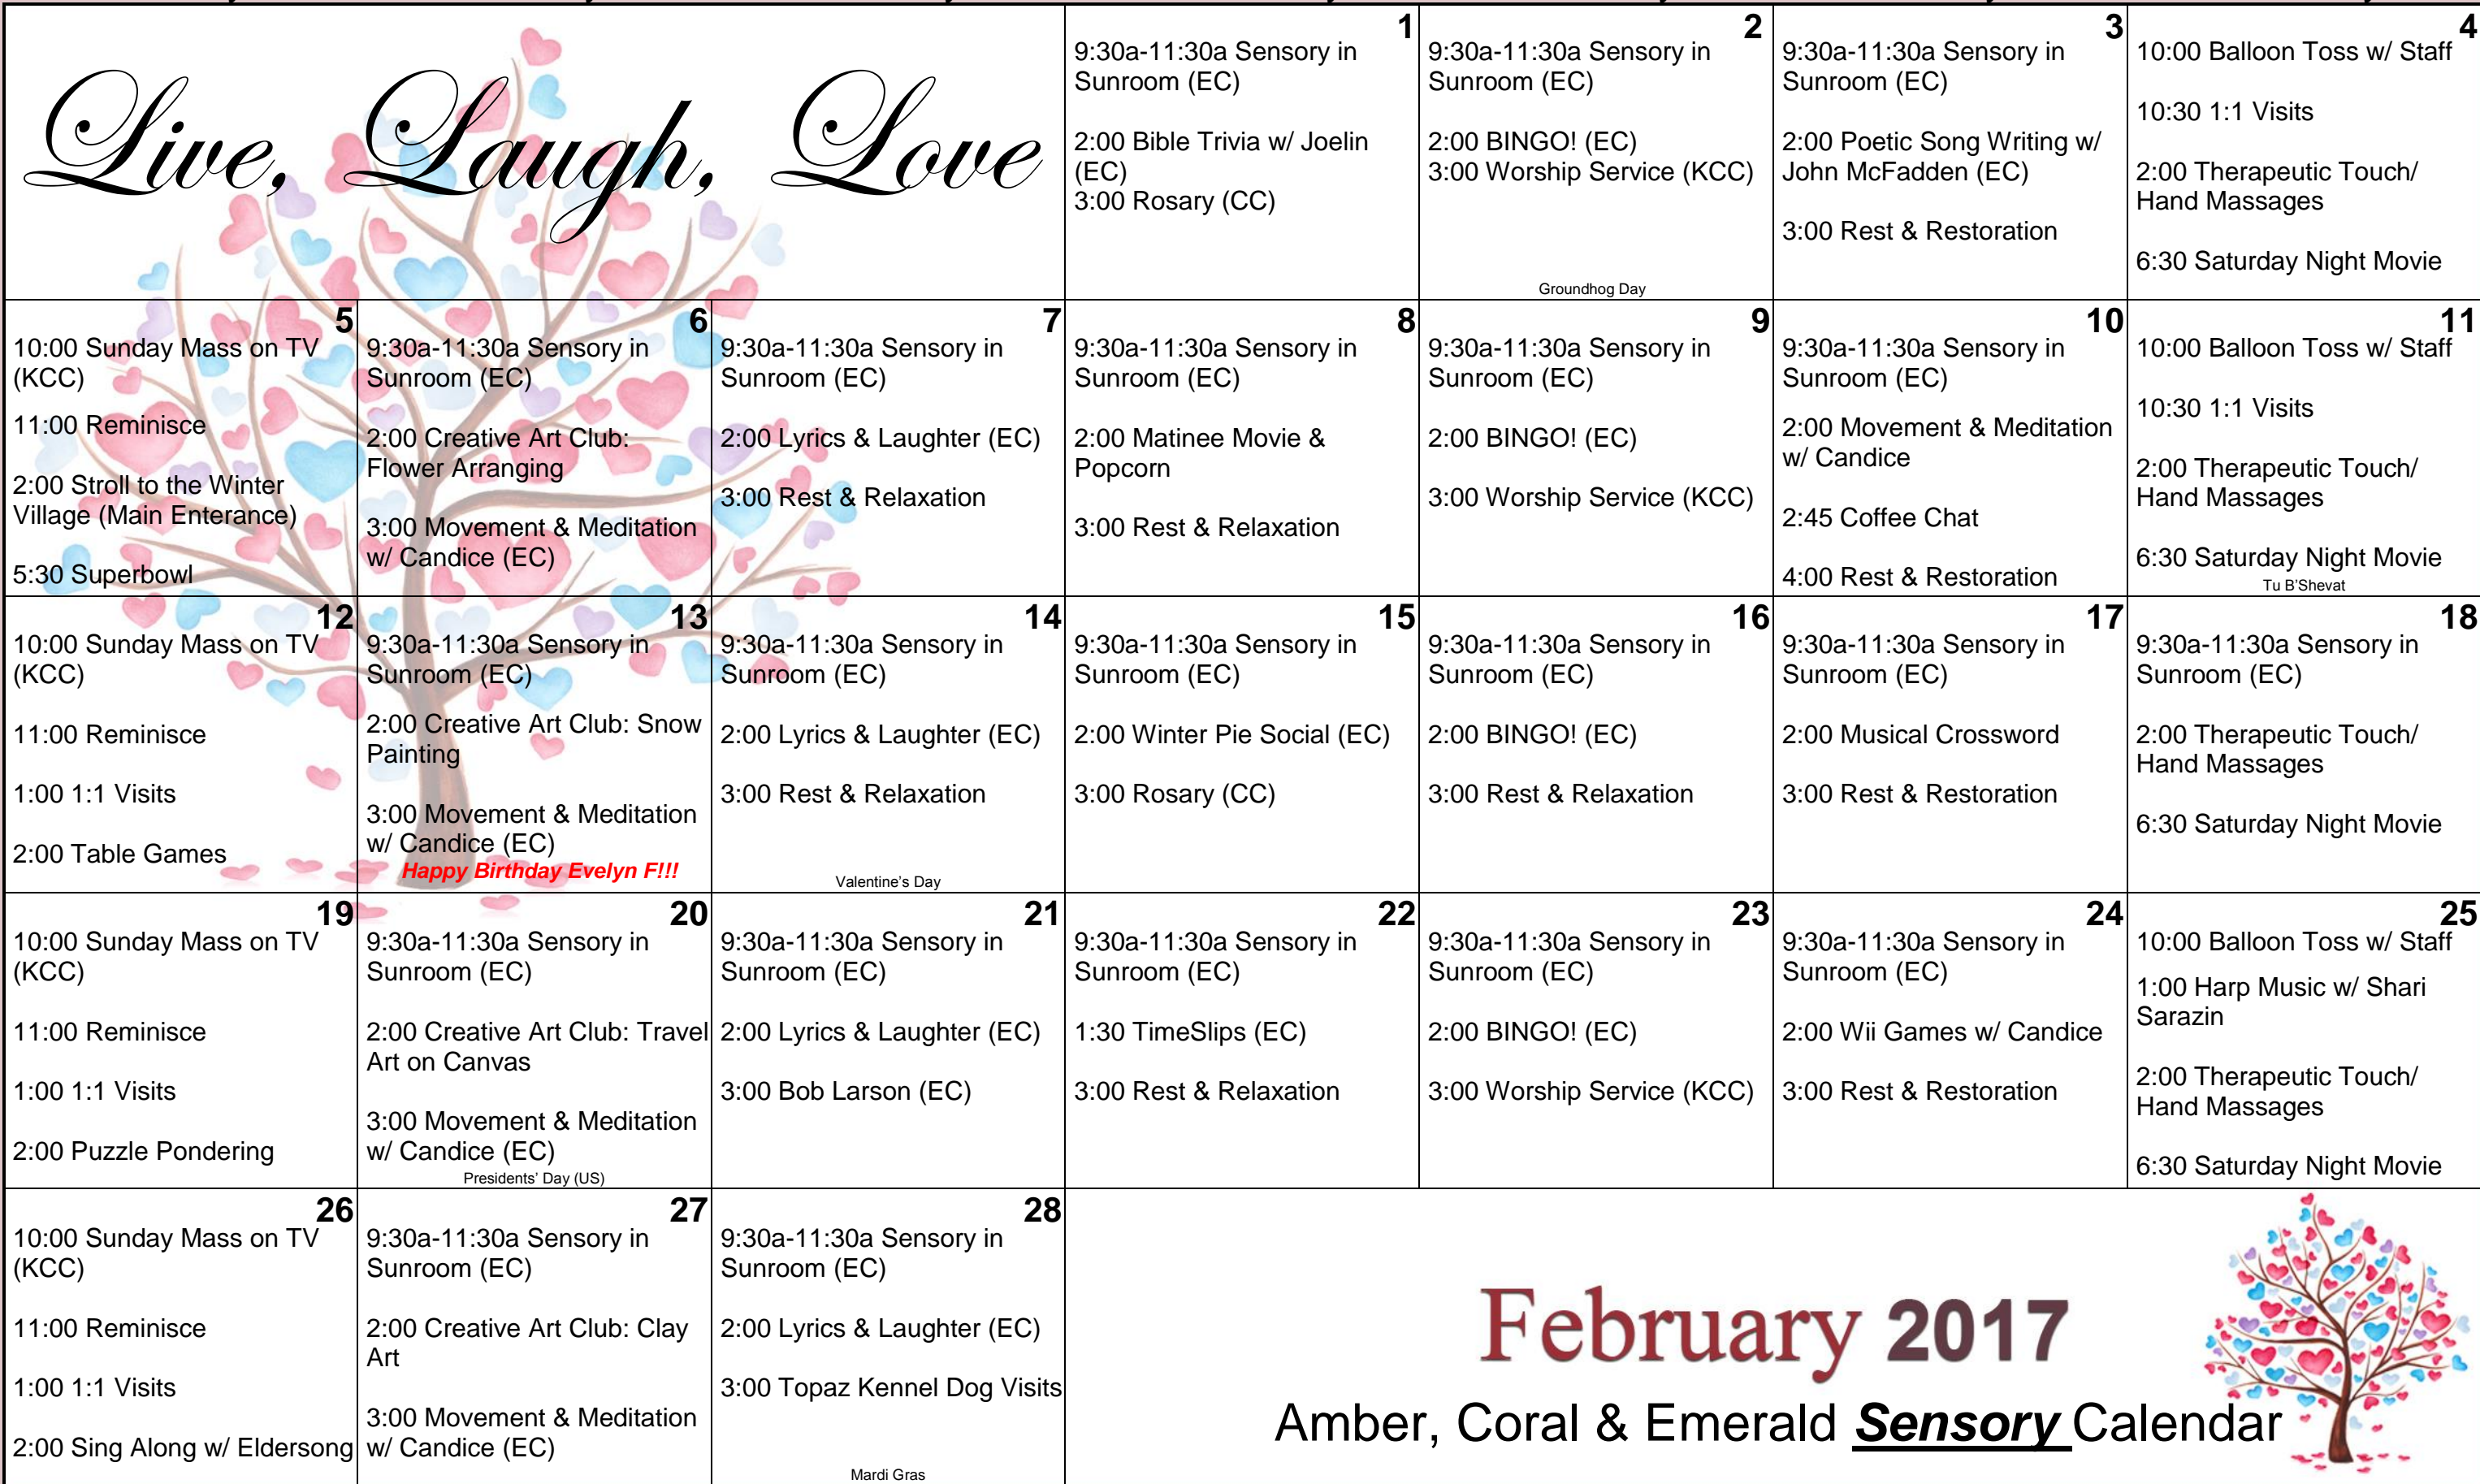 Live, Laugh, Love
1
9:30a-11:30a Sensory in
Sunroom (EC)
2:00 Bible Trivia w/ Joelin
(EC)
3:00 Rosary (CC)
2
9:30a-11:30a Sensory in
Sunroom (EC)
2:00 BINGO! (EC)
3:00 Worship Service (KCC)
Groundhog Day
3
9:30a-11:30a Sensory in
Sunroom (EC)
2:00 Poetic Song Writing w/
John McFadden (EC)
3:00 Rest & Restoration
4
10:00 Balloon Toss w/ Staff
10:30 1:1 Visits
2:00 Therapeutic Touch/
Hand Massages
6:30 Saturday Night Movie
5
10:00 Sunday Mass on TV
(KCC)
11:00 Reminisce
2:00 Stroll to the Winter
Village (Main Enterance)
5:30 Superbowl
6
9:30a-11:30a Sensory in
Sunroom (EC)
2:00 Creative Art Club:
Flower Arranging
3:00 Movement & Meditation
w/ Candice (EC)
7
9:30a-11:30a Sensory in
Sunroom (EC)
2:00 Lyrics & Laughter (EC)
3:00 Rest & Relaxation
8
9:30a-11:30a Sensory in
Sunroom (EC)
2:00 Matinee Movie &
Popcorn
3:00 Rest & Relaxation
9
9:30a-11:30a Sensory in
Sunroom (EC)
2:00 BINGO! (EC)
3:00 Worship Service (KCC)
10
9:30a-11:30a Sensory in
Sunroom (EC)
2:00 Movement & Meditation
w/ Candice
2:45 Coffee Chat
4:00 Rest & Restoration
11
10:00 Balloon Toss w/ Staff
10:30 1:1 Visits
2:00 Therapeutic Touch/
Hand Massages
6:30 Saturday Night Movie
Tu B'Shevat
12
10:00 Sunday Mass on TV
(KCC)
11:00 Reminisce
1:00 1:1 Visits
2:00 Table Games
13
9:30a-11:30a Sensory in
Sunroom (EC)
2:00 Creative Art Club: Snow
Painting
3:00 Movement & Meditation
w/ Candice (EC)
Happy Birthday Evelyn F!!!
14
9:30a-11:30a Sensory in
Sunroom (EC)
2:00 Lyrics & Laughter (EC)
3:00 Rest & Relaxation
Valentine's Day
15
9:30a-11:30a Sensory in
Sunroom (EC)
2:00 Winter Pie Social (EC)
3:00 Rosary (CC)
16
9:30a-11:30a Sensory in
Sunroom (EC)
2:00 BINGO! (EC)
3:00 Rest & Relaxation
17
9:30a-11:30a Sensory in
Sunroom (EC)
2:00 Musical Crossword
3:00 Rest & Restoration
18
9:30a-11:30a Sensory in
Sunroom (EC)
2:00 Therapeutic Touch/
Hand Massages
6:30 Saturday Night Movie
19
10:00 Sunday Mass on TV
(KCC)
11:00 Reminisce
1:00 1:1 Visits
2:00 Puzzle Pondering
20
9:30a-11:30a Sensory in
Sunroom (EC)
2:00 Creative Art Club: Travel
Art on Canvas
3:00 Movement & Meditation
w/ Candice (EC)
Presidents' Day (US)
21
9:30a-11:30a Sensory in
Sunroom (EC)
2:00 Lyrics & Laughter (EC)
3:00 Bob Larson (EC)
22
9:30a-11:30a Sensory in
Sunroom (EC)
1:30 TimeSlips (EC)
3:00 Rest & Relaxation
23
9:30a-11:30a Sensory in
Sunroom (EC)
2:00 BINGO! (EC)
3:00 Worship Service (KCC)
24
9:30a-11:30a Sensory in
Sunroom (EC)
2:00 Wii Games w/ Candice
3:00 Rest & Restoration
25
10:00 Balloon Toss w/ Staff
1:00 Harp Music w/ Shari
Sarazin
2:00 Therapeutic Touch/
Hand Massages
6:30 Saturday Night Movie
26
10:00 Sunday Mass on TV
(KCC)
11:00 Reminisce
1:00 1:1 Visits
2:00 Sing Along w/ Eldersong
27
9:30a-11:30a Sensory in
Sunroom (EC)
2:00 Creative Art Club: Clay
Art
3:00 Movement & Meditation
w/ Candice (EC)
28
9:30a-11:30a Sensory in
Sunroom (EC)
2:00 Lyrics & Laughter (EC)
3:00 Topaz Kennel Dog Visits
Mardi Gras
February 2017
Amber, Coral & Emerald Sensory Calendar